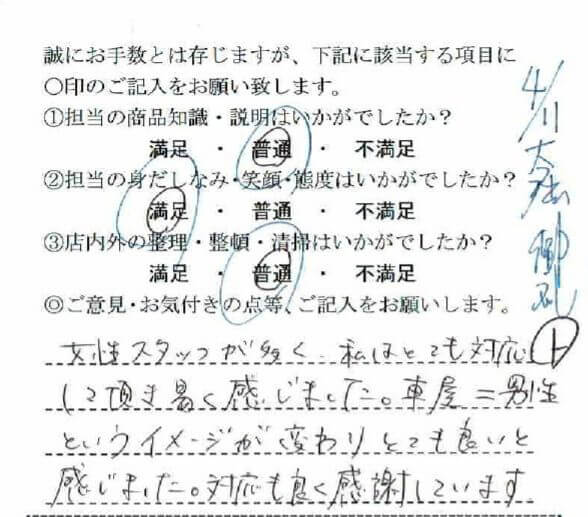 誠にお手数とは存じますが、下記に該当する項目に
〇印のご記入をお願い致します。
①担当の商品知識・説明はいかがでしたか？
満足 ・ 普通 ・ 不満足
②担当の身だしなみ・笑顔・態度はいかがでしたか？
満足 ・ 普通 ・ 不満足
③店内外の整理・整頓・清掃はいかがでしたか？
満足 ・ 普通 ・ 不満足
◎ご意見・お気付きの点等、ご記入をお願いします。
女性スタッフが多く、私はとても対応
して頂き易く感じました。車屋＝男性
というイメージが変わりとても良いと
感じました。対応も良く感謝しています
4/11